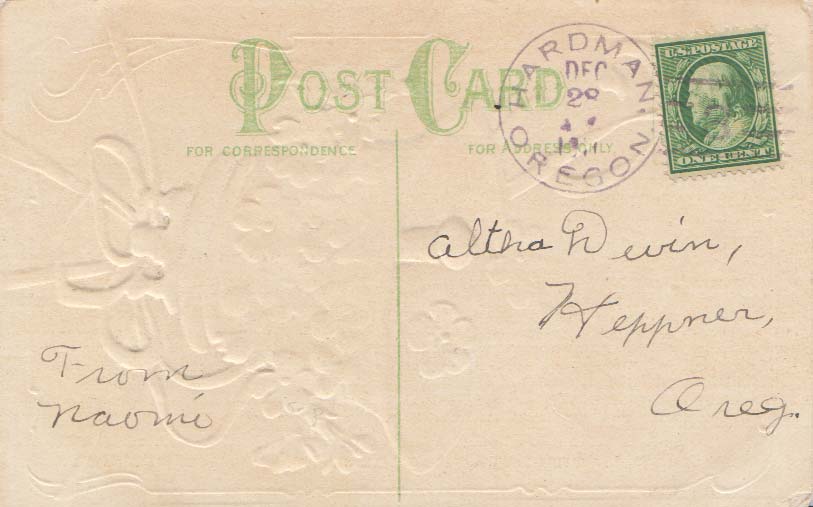 POST CARD
FOR CORRESPONDENCE
FOR ADDRESS ONLY
HARDMAN.
DEC
OREGON
U.S. POSTAGE
ONE CENT
Altha Devin,
Heppner,
Oreg.
From
Naomi